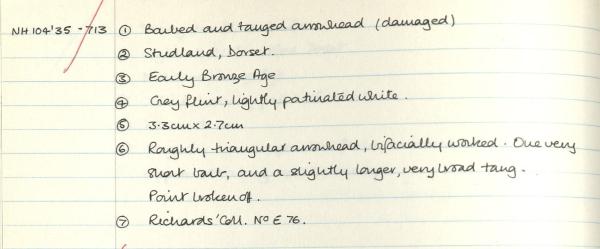 NH 104'35 - 713 ① Barbed and tanged arrowhead (damaged)
② Studland, Dorset.
③ Early Bronze Age
④ Grey flint, lightly patinated white.
⑤ 3.3cm x 2.7cm
⑥ Roughly triangular arrowhead, bifacially worked. One very
short barb, and a slightly longer, very broad tang.
Point broken off.
⑦ Richards' Coll. No E 76.